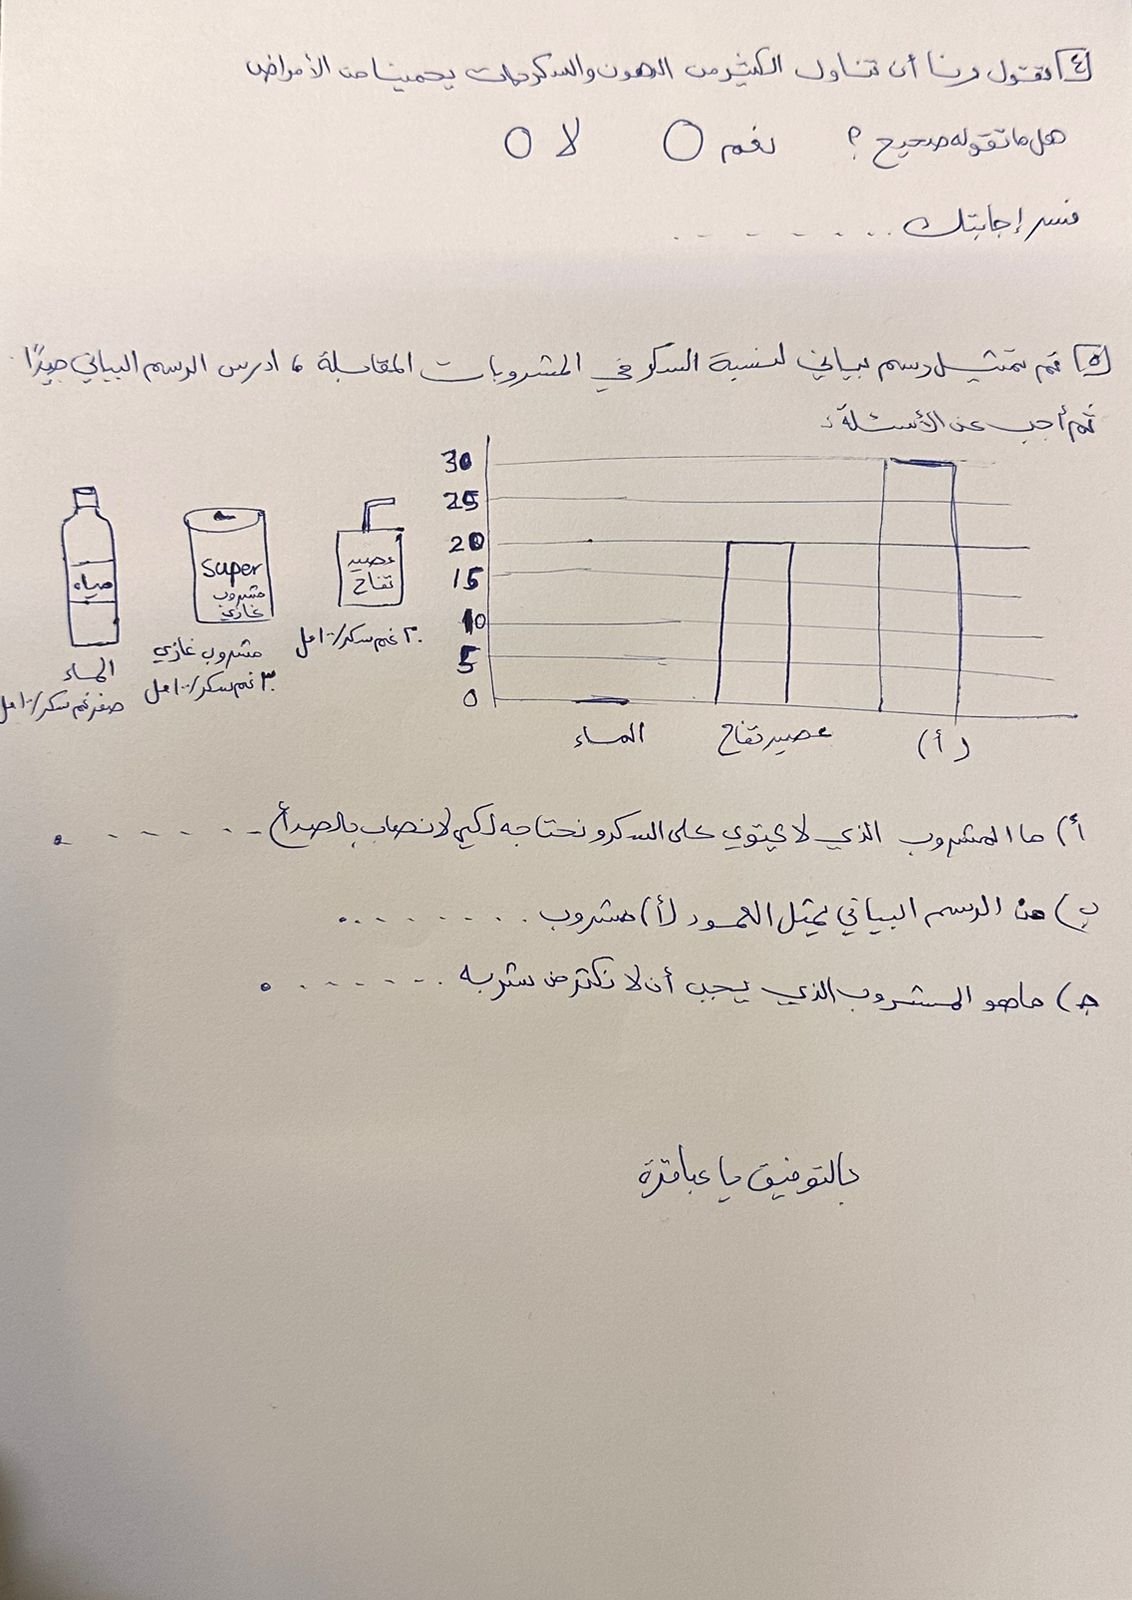 ٤) تقول رنا أن تناول الكثير من الدهون والسكريات يحمينا من الأمراض
هل ما تقوله صحيح ؟ نعم لا
فسر إجابتك ........
٥) تم تمثيل رسم بياني لنسبة السكر في المشروبات المقابلة ، ادرس الرسم البياني جيدًا
ثم أجب عن الأسئلة :
30
25
20
15
10
5
0
الماء
عصير تفاح
(أ)
عصير
تفاح
٢٠ غم سكر/١٠٠ مل
Super
مشروب
غازي
مشروب غازي
٣٠ غم سكر/١٠٠ مل
مياه
الماء
صفر غم سكر/١٠٠ مل
أ) ما المشروب الذي لا يحتوي على السكر و نحتاجه لكي لا نصاب بالصداع ........
ب) من الرسم البياني يمثل العمود (أ) مشروب ........
ج) ما هو المشروب الذي يجب أن لا نكثر من شربه ........
بالتوفيق يا عباقرة